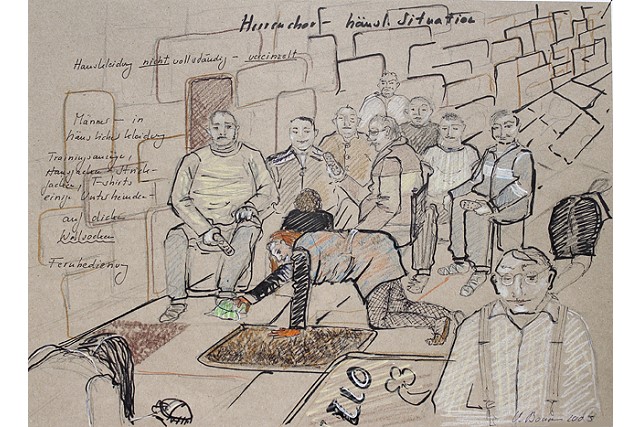 Herrenchor – häusl. Situation
Hauskleidung nicht vollständig – vereinzelt
Männer – in
häuslicher Kleidung
Trainingsanzüge,
Hausjacken – Strick-
jacken, T-shirts
einige Unterhemden –
auf dicken
Wollsocken
Fernbedienung